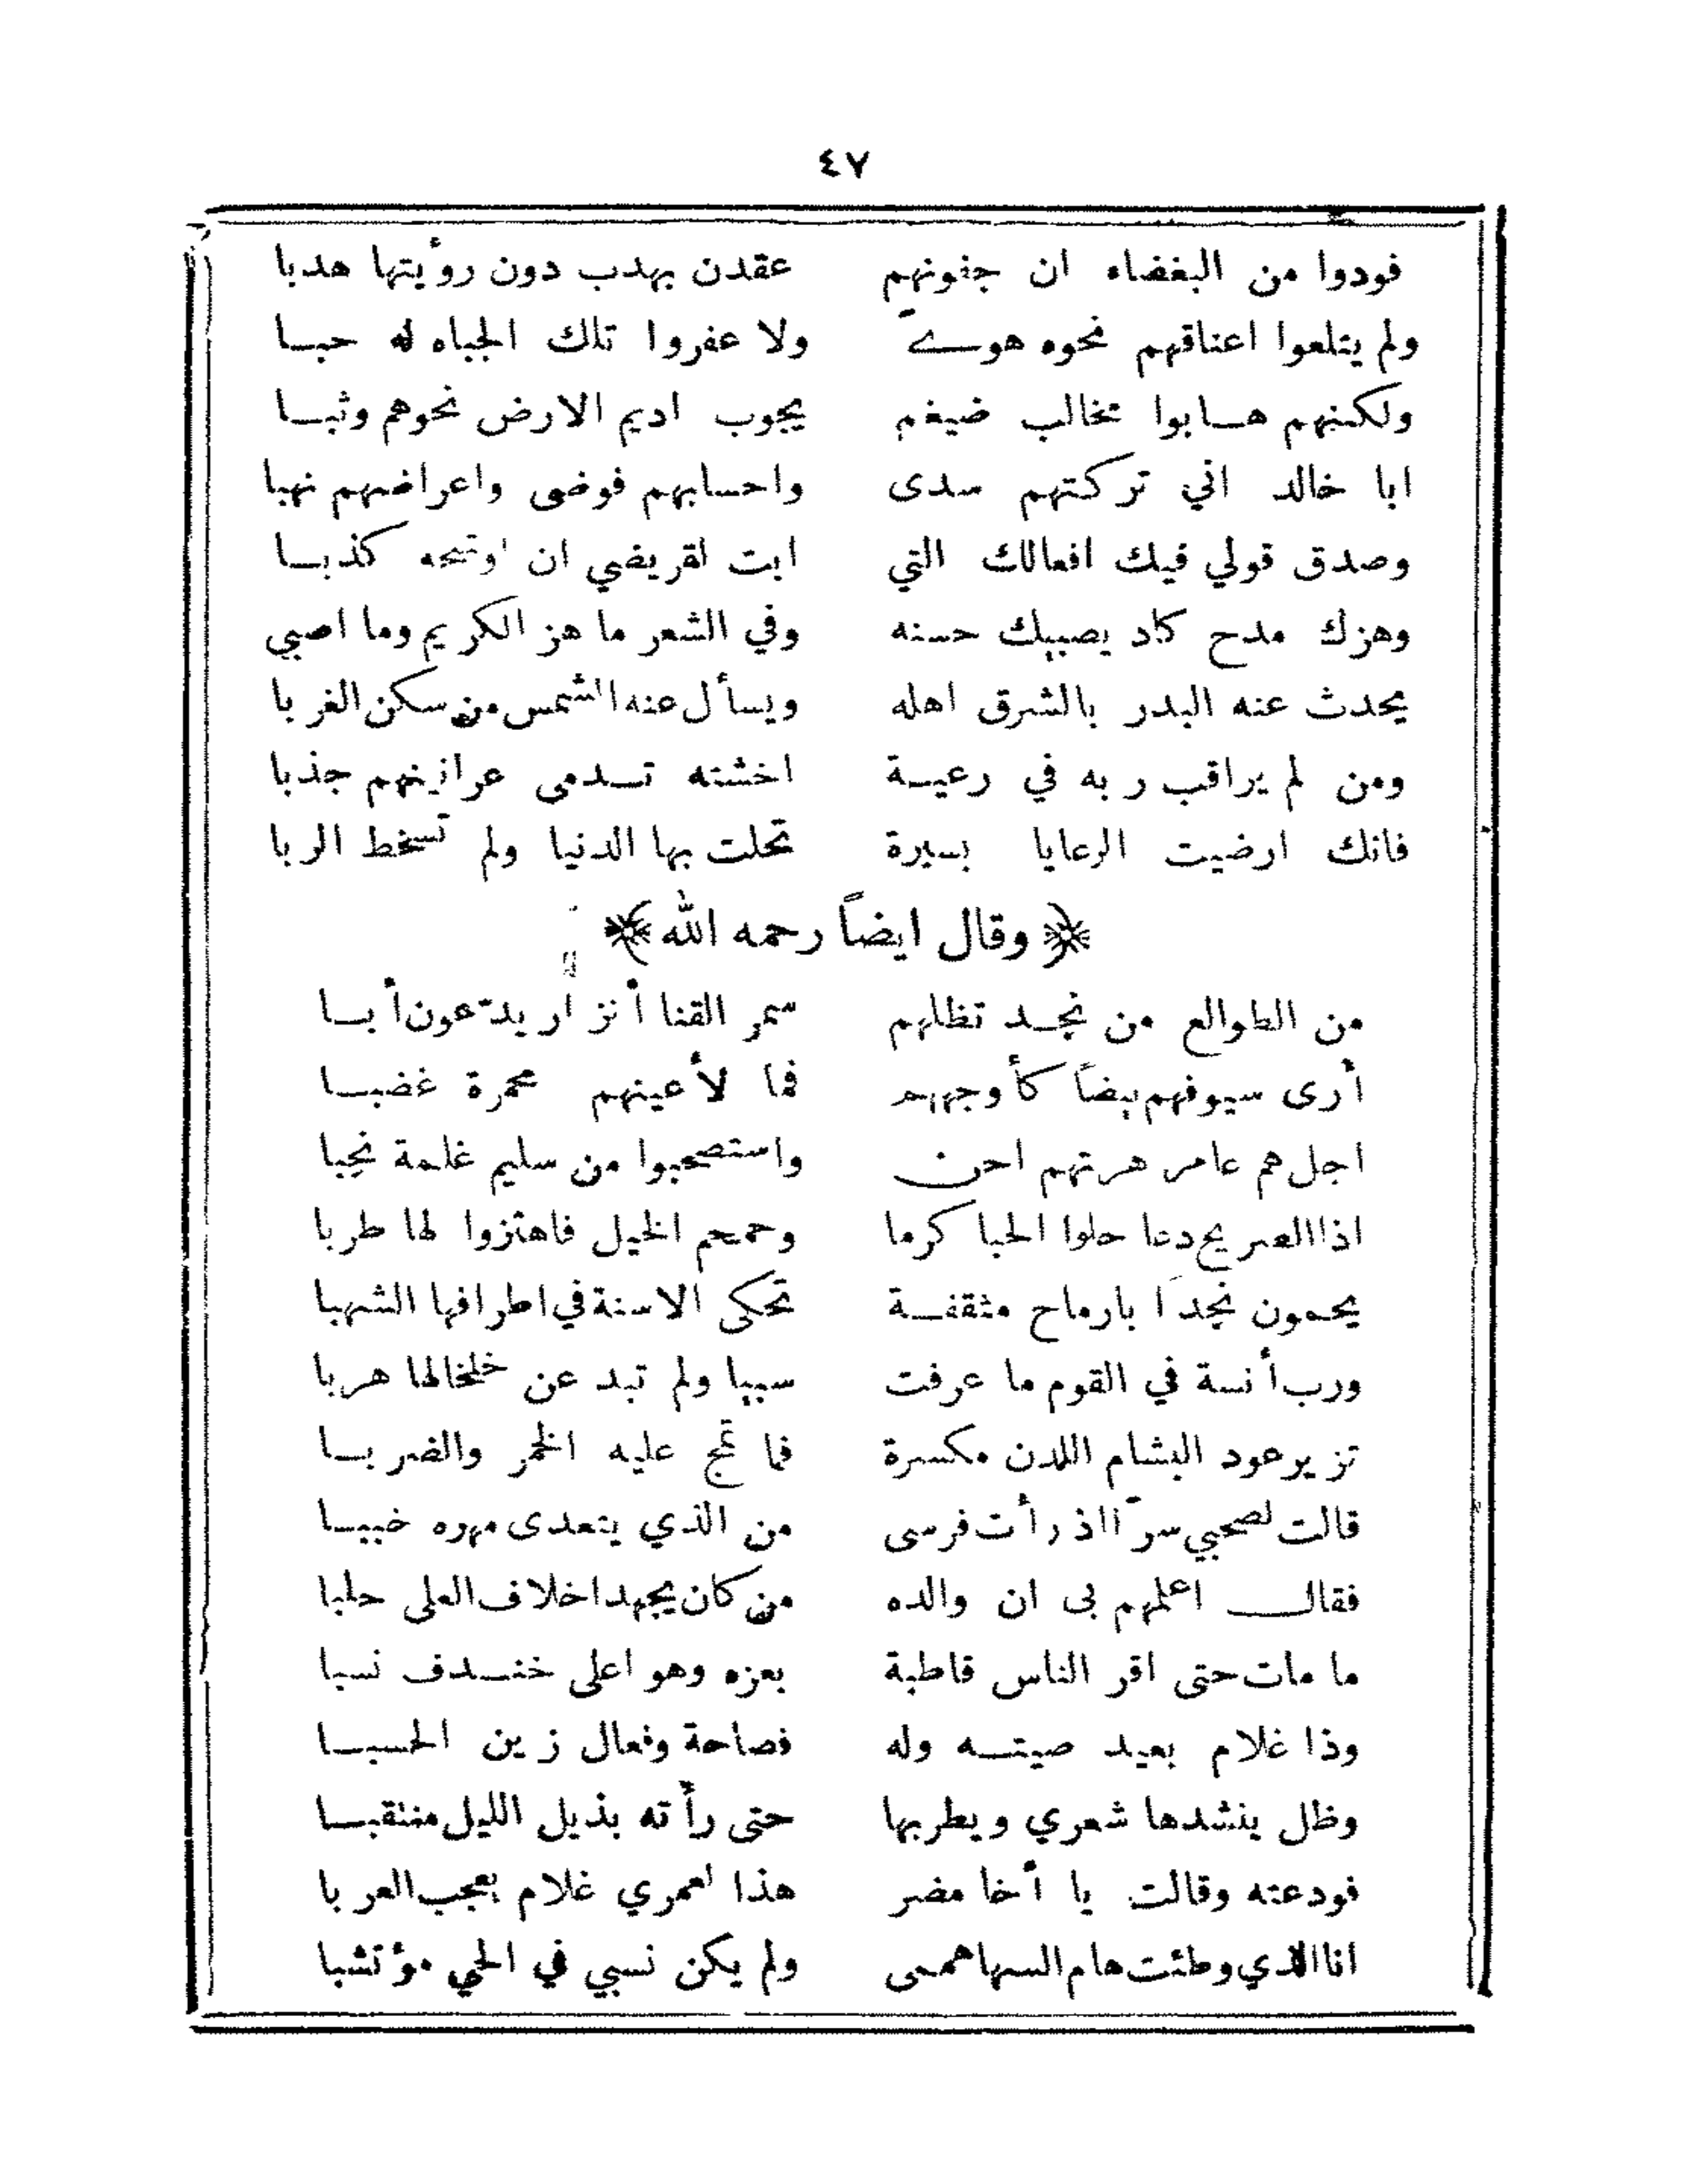 ٤٧
فودوا من البغضاء ان جفونهم عقدن بهدب دون روأيتها هدبا
ولم يتلعوا اعناقهم نحوه هوىً ولا عفروا تلك الجباه له حبا
ولكنهم هابوا مخالب ضيغم يجوب اديم الارض نحوهم وثبا
ابا خالد اني تركتهم سدى واحسابهم فوضى واعراضهم نهبا
وصدق قولي فيك افعالك التي ابت لقريضي ان اوشحه كذبا
وهزك مدح كاد يصبيك حسنه وفي الشعر ما هز الكريم وما اصبى
يحدث عنه البدر بالشرق اهله ويسأل عنه الشمس من سكن الغربا
ومن لم يراقب ربه في رعية اخشته تدمى عرانينهم جذبا
فانك ارضيت الرعايا بسيرة تحلت بها الدنيا ولم تسخط الربا
وقال ايضاً رحمه الله
من الطوالع من نجد تظلهم سمر القنا أنزاريدّعون أبا
أرى سيوفهم بيضاً كأوجههم فما لأعينهم محمرة غضبا
اجل هم عامر هزتهم احن واستصحبوا من سليم غلمة نجبا
اذا الصريح دعا حلوا الحبا كرما وحمحم الخيل فاهتزوا لها طربا
يحمون نجداً بارماح مثقفة تحكى الاسنة في اطرافها الشهبا
ورب أنسة في القوم ما عرفت سبيا ولم تبد عن خلخالها هربا
تزير عود البشام اللدن مكسرة فما تمج عليه الخمر والضربا
قالت لصحبي سرّااذ رأت فرسى من الذي يتعدى مهره خببا
فقال اعلمهم بى ان والده من كان يجهد اخلاف العلى حلبا
ما مات حتى اقر الناس قاطبة بعزه وهو اعلى خندف نسبا
وذا غلام بعيد صيته وله فصاحة وفعال زين الحسبا
وظل ينشدها شعري ويطربها حتى رأته بذيل الليل منتقبا
فودعته وقالت يا أخا مضر هذا لعمري غلام يعجب العربا
انا الذي وطئت هام السها هممى ولم يكن نسبي في الحي مؤتشبا